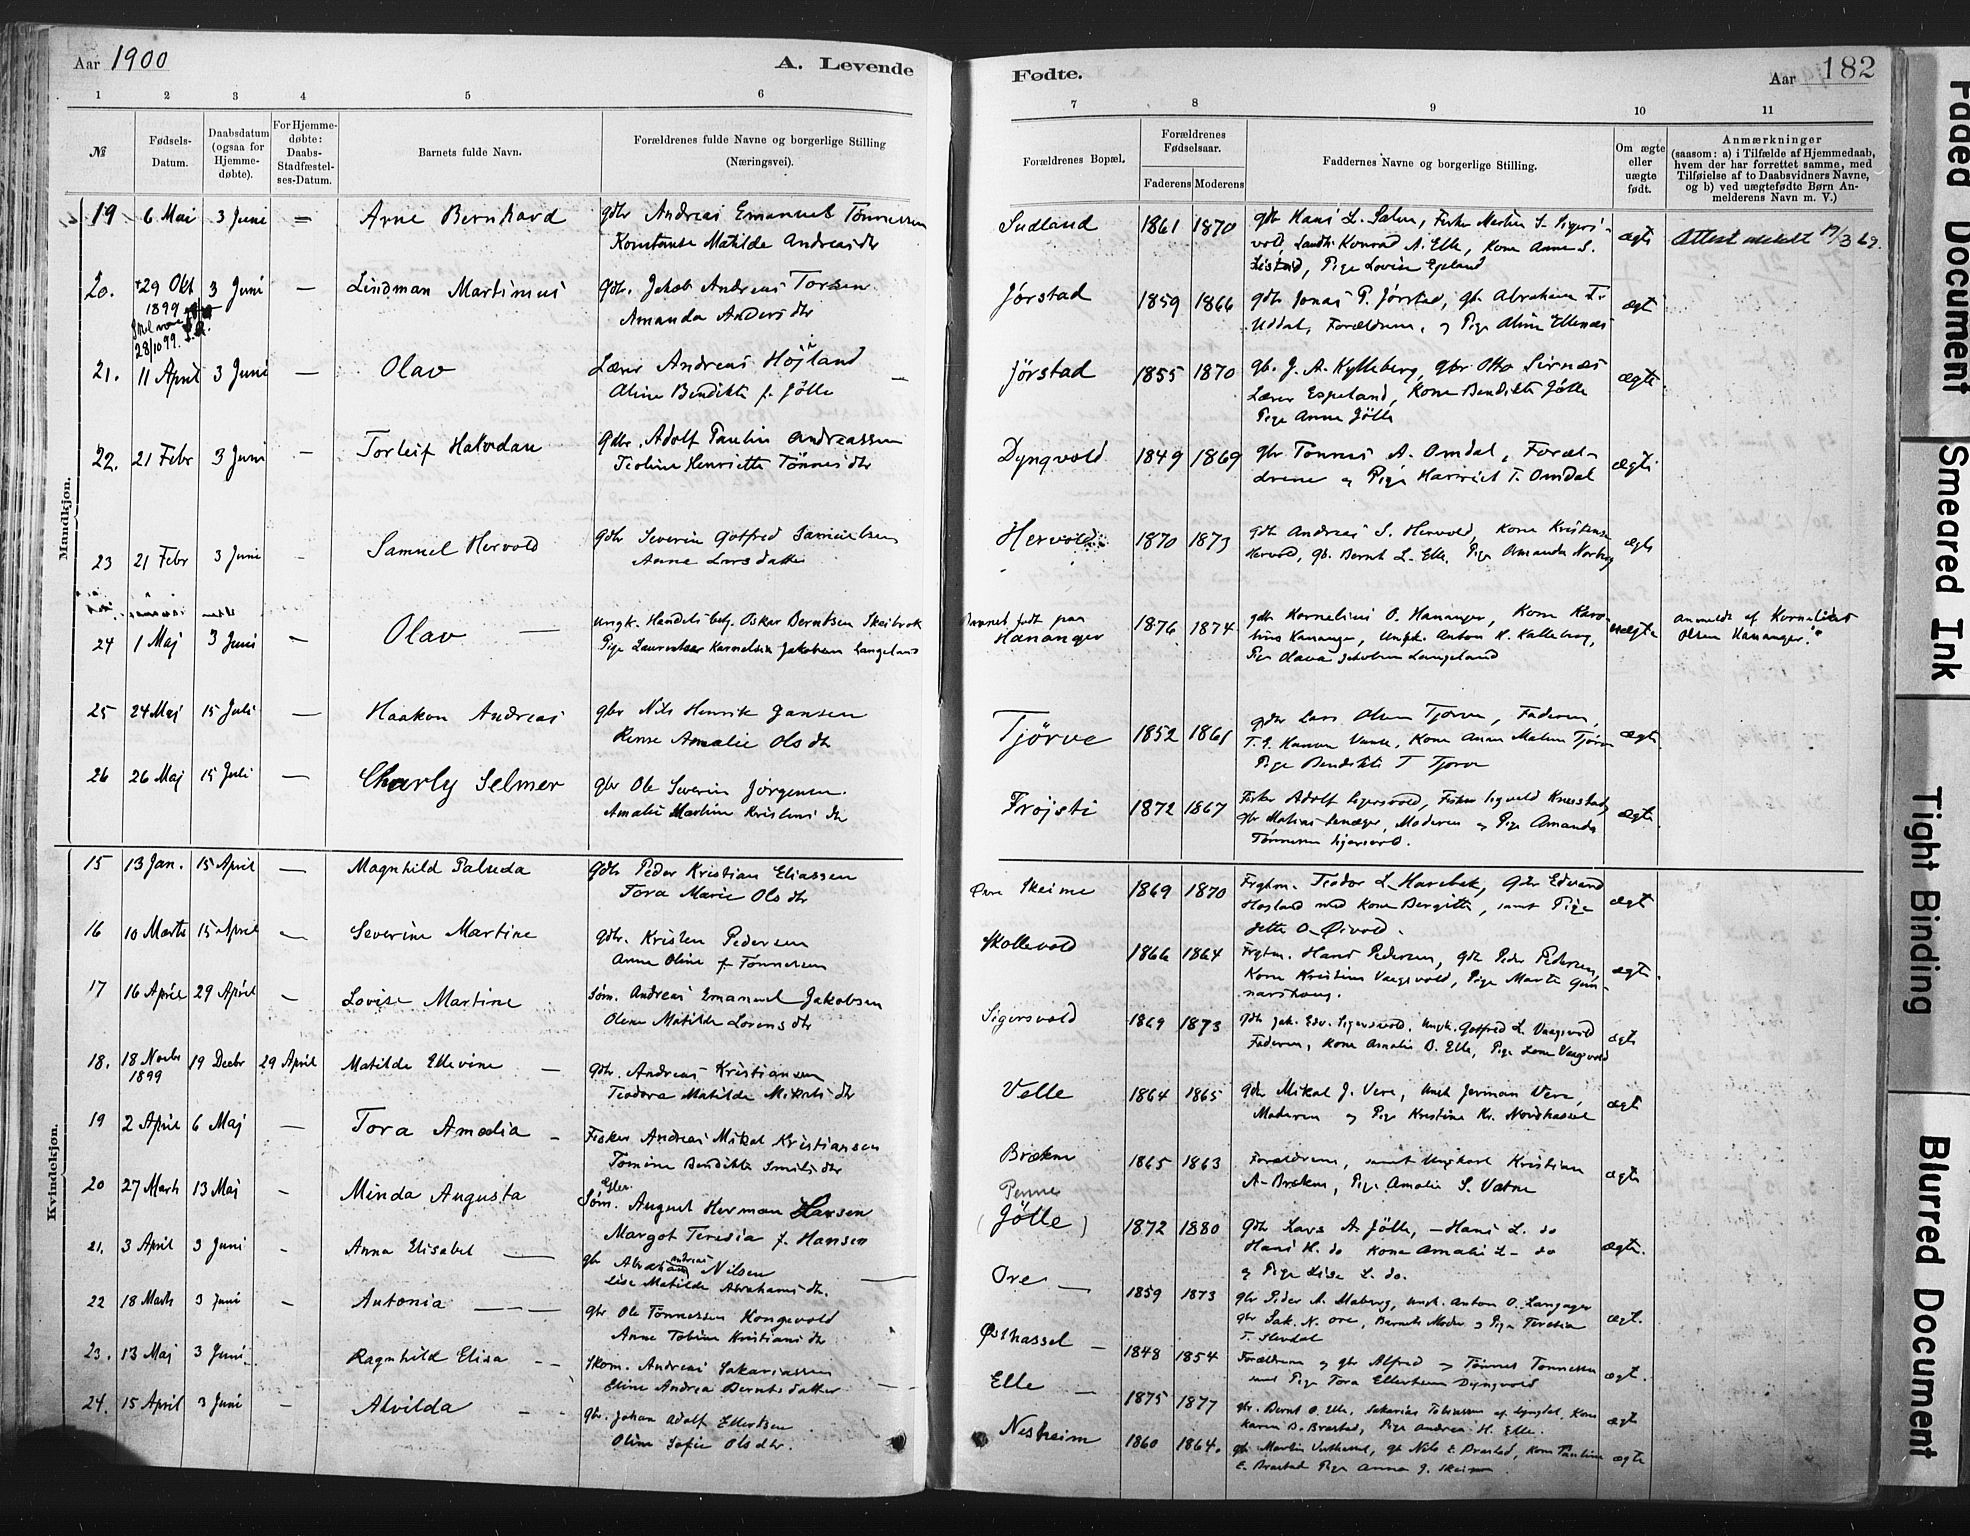 Aar 1900
A. Levende
1 2 3 4 5 6
№
Fødsels-
Datum.
Daabsdatum
(ogsaa for
Hjemme-
døbte).
For Hjemme-
døbte:
Daabs-
Stadfæstel-
ses-Datum.
Barnets fulde Navn.
Forældrenes fulde Navne og borgerlige Stilling
(Næringsvei).
Mandkjøn.
19 6 Mai 3 Juni — Arne Bernhard gbr Andreas Emanuel Tønnessen
Konstanse Matilde Andreasdtr
20. 29 Okt 3 Juni — Lindman Martinius gbr. Jakob Andreas Torsen
1899
28/10 99.
Amanda Andersdtr
21. 11 April 3 Juni — Olav Lærer Andreas Højland —
Aline Bendikte f. Jølle
22. 21 Febr 3 Juni — Torleif Halvdan gbr. Adolf Paulin Andreassen
Teoline Henriette Tønnesdtr
23 21 Febr 3 Juni - Samuel Hervold gbr Severin Gotfred Samuelsen
Anne Larsdatter
24 1 Maj 3 Juni — Olav — ungk. Handelsbetj. Oskar Berntsen Skeibrok
Pige Laurentse Kornelia Jakobsen Langeland
25 24 Maj 15 Juli — Haakon Andreas gbr Nils Henrik Jansen
Amalie Olsdtr
26 26 Maj 15 Juli — Charly Selmer gbr Ole Severin Jørgensen.
Amalie Martine Kristensdtr
Kvindekjøn.
15 13 Jan. 15 April — Magnhild Palude gbr Peder Kristian Eliassen
Tora Marie Olsdtr
16 10 Marts 15 April — Severine Martine gbr. Kristen Pedersen
Anne Oline f. Tønnessen
17 16 April 29 April - Lovise Martine Søm. Andreas Emanuel Jakobsen
Oline Matilde Lorensdtr
18. 18 Novbr 19 Decbr 29 April Matilde Ellevine — gbr. Andreas Kristiansen
1899
Teodora Matilde Mikalsdtr
19 2 April 6 Maj — Tora Amalia - Fisker Andreas Mikal Kristiansen
Tomine Bendikte Smitsdtr
20 27 Marts 13 Maj - Minda Augusta Søm. August Herman Hansen
Margot Teresia f. Hansen
21. 3 April 3 Juni - Anna Elisabet — gbr Abraham Nilsen —
andreas
Lise Matilde Abrahamsdtr.
22 18 Marts 3 Juni - Antonia — gbr Ole Tønnessen Kongevold
Anne Tobine Kristiansdtr
23. 13 Maj 3 Juni - Ragnhild Elisa — Skom. Andreas Sakariassen
Eline Andrea Berntsdatter —
24. 15 April 3 Juni - Alvilda - gbr. Johan Adolf Ellertsen
Oline Sofie Olsdtr.
Fødte.
Aar 182
7 8 9 10 11
Forældrenes Bopæl.
Forældrenes
Fødselsaar.
Faderens Moderens
Faddernes Navne og borgerlige Stilling.
Om ægte
eller
uægte
født.
Anmærkninger
(saasom: a) i Tilfælde af Hjemmedaab,
hvem der har forrettet samme, med
Tilføielse af to Daabsvidners Navne,
og b) ved uægtefødte Børn An-
melderens Navn m. V.)
Sudland 1861 1870 gbr Hans L. Salen, Fisker Martin S. Sigers-
vold, Landh. Konrad A. Elle, Kone Anne S. ægte Attest utstedt 17/3 69.
Listad, Pige Lovise Epeland
Jørstad 1859 1866 gbr Jonas P. Jørstad, gbr. Abraham Tr. ægte
Uddal, Forældrene, og Pige Aline Ellenæs
Jørstad 1855 1870 gb. J. A. Kylleberg, gbr Otto Sirnæs ægte
Lærer Espeland, Kone Bendikte Jølle
Pige Anne Jølle
Dyngvold 1849 1869 gbr Tønnes A. Omdal, Foræl- ægte
drene og Pige Harriet T. Omdal
Hervold 1870 1873 gbr Andreas S. Hervold, Kone Kristense ægte
Hervold, gb. Bernt L. Elle, Pige Amanda Norberg
Barnet født paa
Hananger 1876 1874 gbr Kornelius O. Hananger, Kone Karo- uægte anmeldt af Kornelius
line Hananger, Ungk. Anton K. Kalleberg, Olsen Hananger
Pige Olava Jakobsen Langeland
Tjørve 1852 1861 gbr Lars Olsen Tjørve, Faderen, ægte
T. J. Hansen Vanse, Kone Anne Malene Tjørve
Pige Bendikte T Tjørve
Frøjsti 1872 1867 Fisker Adolf Sigersvold, Fisker Sigvald Knivstad, ægte.
gbr Matias, Moderen og Pige Amanda
Tønnesen Sigersvold.
Øvre Skeime 1869 1870 Frgtm. Teodor L. Havebak, gbr Edvard ægte
Høyland med Kone Bergitte, samt Pige
Jette O. Øivold.
Skollevold 1866 1864 Frgtm. Hans Pedersen, gbr Peder Pedersen, ægte
Kone Kristine Vaagsvold, Pige Marte Gun-
narshaug.
Sigersvold 1869 1873 gbr Jak. Edv. Sigersvold, Ungk. Gotfred L. Vaagsvold ægte
Faderen, Kone Amalie B. Elle, Pige Lene Vaagsvold
Velle 1864 1865 gbr Mikal J. Vere, Ungk Herman Vere, ægte
Moderen og Pige Kristine Kr. Nordhassel
Brækne 1865 1863 Forældrene, samt Ungkarl Kristian ægte
A. Brækne, Pige Amalie S. Vatne
Penne
(Jølle) 1872 1880 gbr Lars A. Jølle, — Hans L. do ægte.
Hans H. do Kone Amalie L — do
og Pige Lise L. do.
Ore — 1859 1873 gbr Peder A. Maberg, Ungk. Anton O. Langager ægte.
gbr Sak. N. Ore, Barnets Moder og Pige Teresia
Østhassel — 1848 1854 Forældrene og gbr Alfred og Tønnes Tønnessen ægte.
samt Pige Tora Ellertsen Dyngvold
Elle — 1875 1877 gbr. Bernt O. Elle, Sakarias Tobiassen af Lyngdal, Kone ægte
Karen B. Brastad, Pige Andrea H. Elle.
Nesheim 1860 1864. gbr Martin Vesthassel, gb Nils E Brastad, Kone Pauline ægte
E. Brastad Pige Anna J. Skeime
Faded Document
Smeared Ink
Tight Binding
Blurred Document